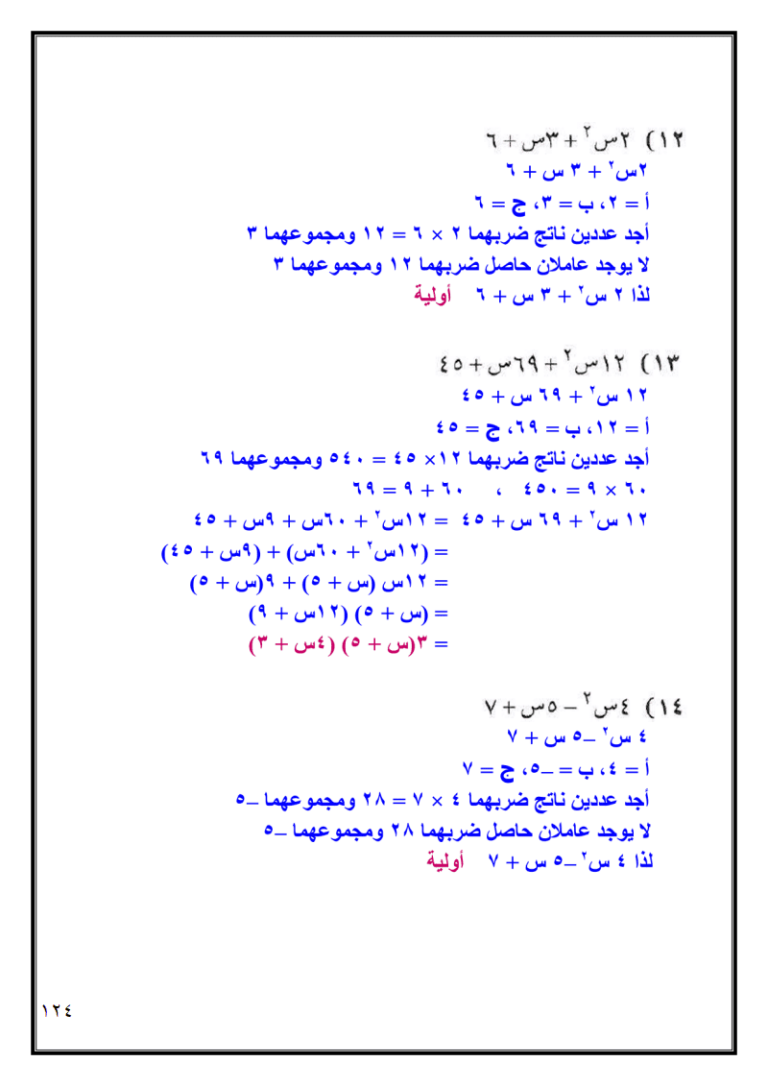 ١٢) ٢س٢ + ٣س + ٦
٢س٢ + ٣ س + ٦
أ = ٢، ب = ٣، ج = ٦
أجد عددين ناتج ضربهما ٢ × ٦ = ١٢ ومجموعهما ٣
لا يوجد عاملان حاصل ضربهما ١٢ ومجموعهما ٣
لذا ٢ س٢ + ٣ س + ٦ أولية
١٣) ١٢س٢ + ٦٩س + ٤٥
١٢ س٢ + ٦٩ س + ٤٥
أ = ١٢، ب = ٦٩، ج = ٤٥
أجد عددين ناتج ضربهما ١٢× ٤٥ = ٥٤٠ ومجموعهما ٦٩
٦٠ × ٩ = ٤٥٠ ، ٦٠ + ٩ = ٦٩
١٢ س٢ + ٦٩ س + ٤٥ = ١٢س٢ + ٦٠س + ٩س + ٤٥
= (١٢س٢ + ٦٠س) + (٩س + ٤٥)
= ١٢س (س + ٥) + ٩(س + ٥)
= (س + ٥) (١٢س + ٩)
= ٣(س + ٥) (٤س + ٣)
١٤) ٤س٢ – ٥س + ٧
٤ س٢ –٥ س + ٧
أ = ٤، ب = –٥، ج = ٧
أجد عددين ناتج ضربهما ٤ × ٧ = ٢٨ ومجموعهما –٥
لا يوجد عاملان حاصل ضربهما ٢٨ ومجموعهما –٥
لذا ٤ س٢ –٥ س + ٧ أولية
١٢٤